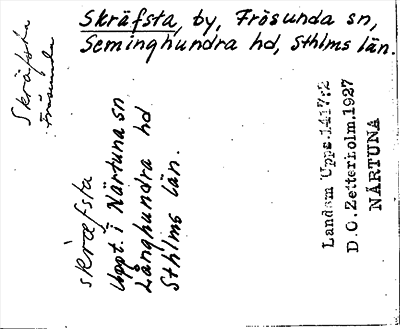 Skräfsta, by, Frösunda sn,
Seminghundra hd, Sthlms län.
Skräfsta
Frösunda
skræfsta
Uppt. i Närtuna sn
Långhundra hd
Sthlms län.
Landsm Upps. 1417:2
D.O. Zetterholm. 1927
NÄRTUNA